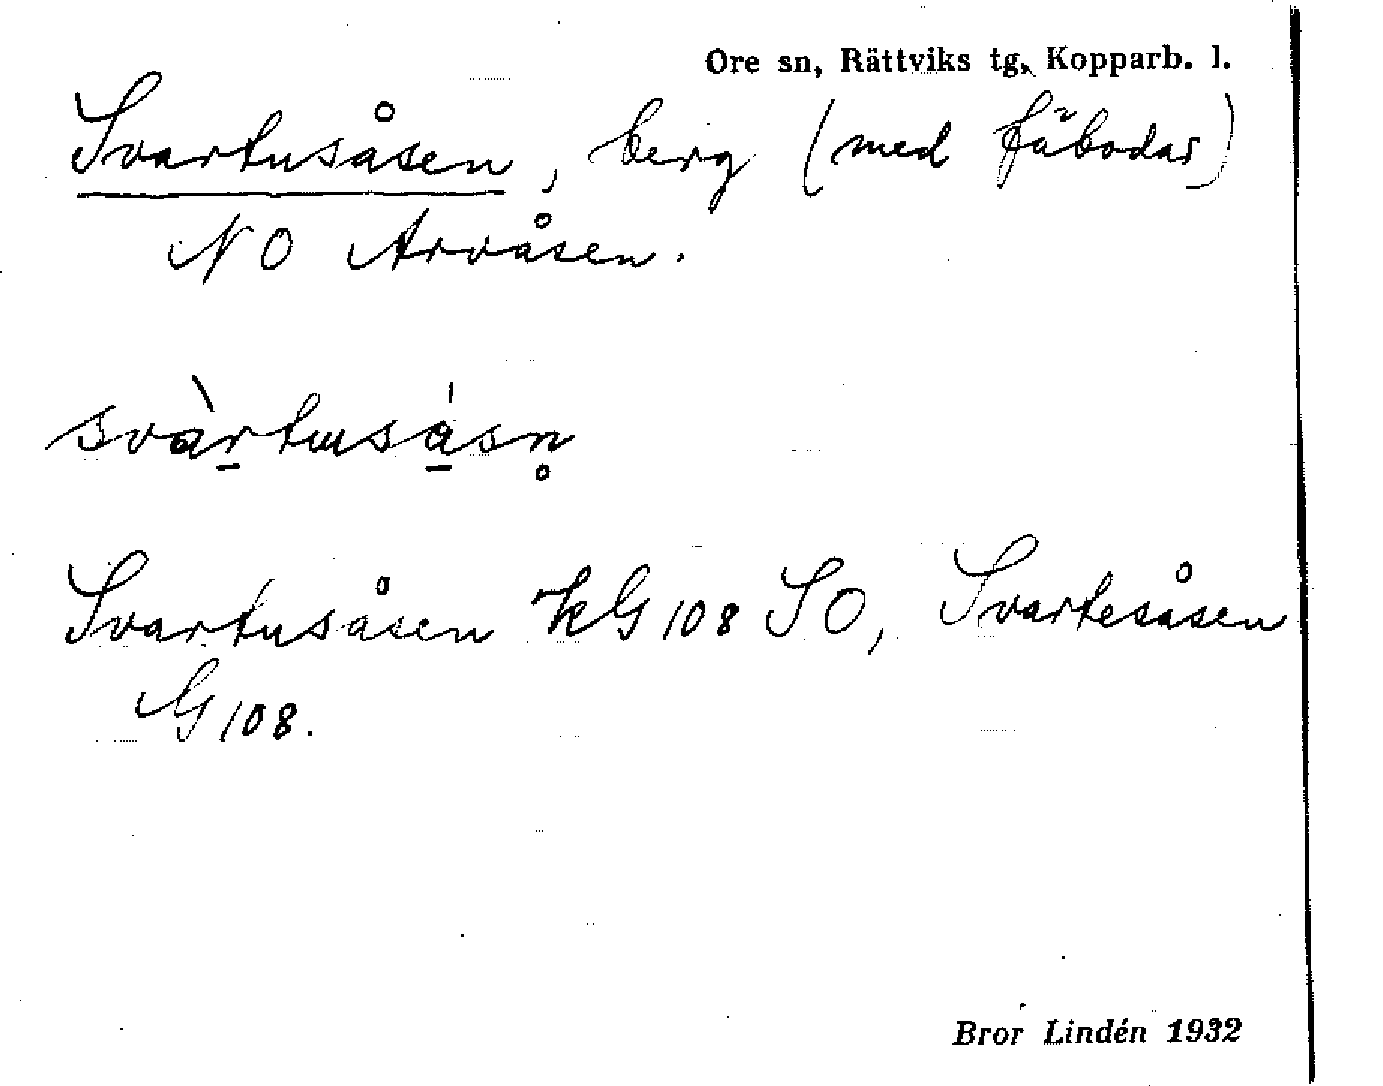 Ore sn, Rättviks tg, Kopparb. l.
Svartusåsen, berg (med fäbodar)
NO Arvåsen.
svàrtusásn̥
Svartusåsen KG 108 SO, Svartesåsen
G 108.
Bror Lindén 1932